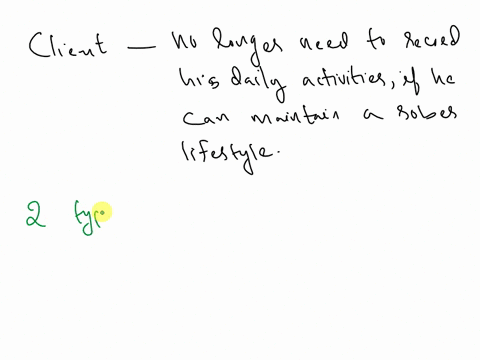 Client — No longer need to record
his daily activities, if he
can maintain a sober
lifestyle.
2 typ